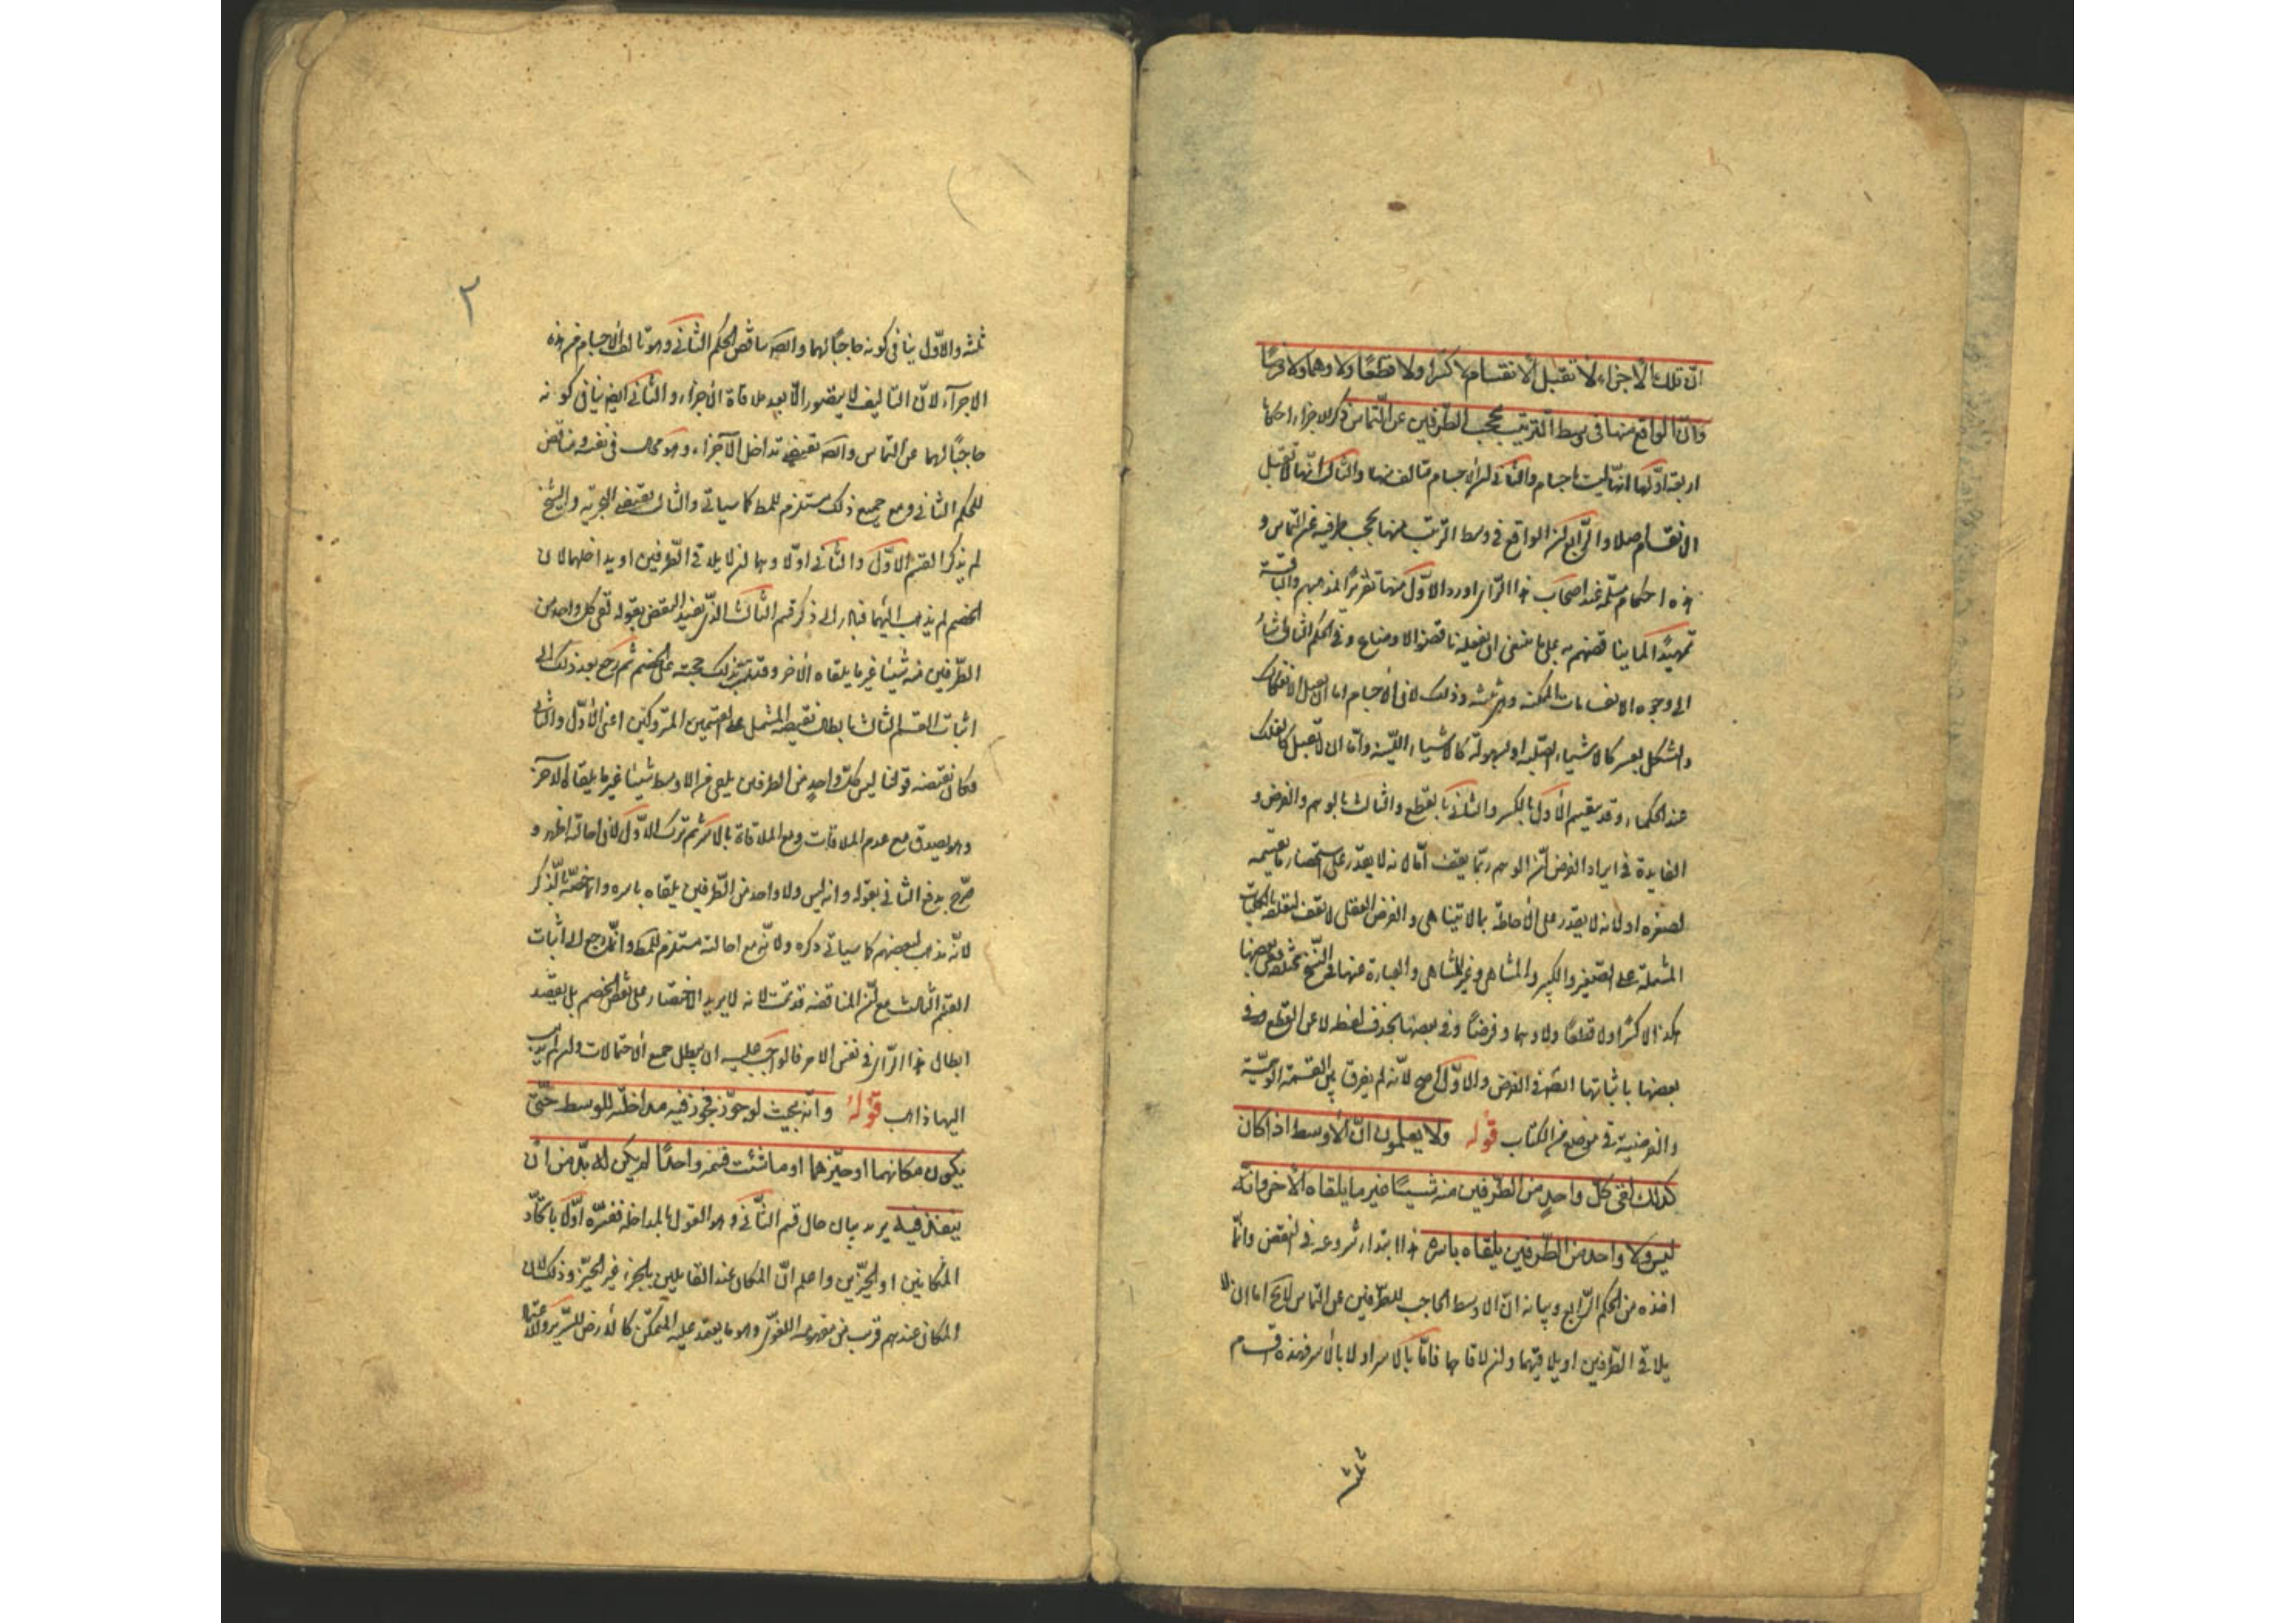 انّ تلك الاجزاء لا تقبل الانقسام لا كسرا ولا قطعًا ولا وهما ولا فرضًا
وانّ الواقع منها فى وسط الترتيب يحجب الطرفين عن التماس ذكر للاجزاء احكاما
اربعة اوّلها انّها ليست باجسام والثانى ان الاجسام متألف منها والثالث انّها لا تقبل
الانقسام اصلا والرّابع ان الواقع فى وسط الترتيب منها يحجب طرفيه عن التماس و
هذه احكام مسلّمة عند اصحاب هذا الرّاى اورد الاوّل منها تقريرًا لمذهبهم والباقية
تمهيدًا لما يناقضهم به على ما ينبغى ان يفعله ناقضوا الاوضاع وفى الحكم الثالث اشار
الى وجوه الانقسامات الممكنة وهى ثلثة وذلك لان الاجسام اما ان تقبل الانفكاك
والتشكل بعسر كالاشياء الصّلبة او بسهولة كالاشياء الليّنة وامّا ان لا تقبل كالفلك
عند الحكماء وقد ينقسم الأول بالكسر والثانى بالقطع والثالث بالوهم والفرض و
الفايدة فى ايراد الفرض انّ الوهم ربّما يقف امّا لانه لا يقدر على استحضار ما يقسمه
لصغره او لانه لا يقدر على الأحاطة بما لا يتناهى والفرض العقلى لا يقف لتعلقه بالكليات
المشتملة على الصّغير والكبير والمتناهى وغير المتناهى والعبارة عنها فى النّسخ مختلفة ففى بعضها
هكذا لا كسرًا ولا قطعًا ولا وهما وفرضًا وفى بعضها بحذف لفظة لا عن القطع وفى
بعضها باثباتها ايضًا فى الفرض والاوّل اصح لانّه لم يفرق بين القسمة الوهميّة
والفرضية فى موضع من الكتاب قوله ولا يعلمون انّ الأوسط اذا كان
كذلك لقى كلّ واحدٍ من الطّرفين منه شيئًا غير ما يلقاه الآخر وانّه
ليس ولا واحد من الطّرفين يلقاه باسره هذا ابتداء شروعه فى النقض وانّما
اخذه من الحكم الرّابع وبيانه انّ الاوسط الحاجب للطّرفين عن التماس لا يخ اما ان لا
يلاقى الطّرفين او يلاقيهما وان لاقاهما فامّا بالاسر او لا بالأسر فهذه اقسام
ثلثة
٢
ثلثة والاوّل ينافى كونه حاجبًا لهما وايضًا يناقض الحكم الثانى وهو تألف الأجسام من هذه
الاجزاء لانّ التاليف لا يتصور الّا بعد ملاقاة الأجزاء والثانى ايضا ينافى كونه
حاجبًا لهما عن التماس وايضا يقتضى تداخل الأجزاء وهو محال فى نفسه ومناقض
للحكم الثانى ومع جميع ذلك مستلزم للمط كما سياتى والثالث يقتضى التجزية والشيخ
لم يذكر القسم الاوّل والثانى اولا وهما ان لا يلاقى الطّرفين او يداخلهما لان
الخصم لم يذهب اليهما فبادر الى ذكر قسم الثالث الذّى يفيد النقض بقوله لقى كل واحد من
الطّرفين منه شيئا غير ما يلقاه الآخر وقد تمّ بذلك حجته على الخصم ثم رجع بعد ذلك الى
اثبات القسم الثالث بابطال نقيضه المشتمل على القسمين المتروكين اعنى الأوّل والثانى
وكان نقيضه قولنا ليس كلّ واحدٍ من الطرفين يلقى من الاوسط شيئا غير ما يلقاه الآخر
وهو يصدق مع عدم الملاقات ومع الملاقاة بالاسر ثم ترك الاوّل لان احالته اظهر و
صرّح برفع الثانى بقوله وانه ليس ولا واحد من الطّرفين يلقاه باسره وانما خصّه بالذكر
لانّه مذهب لبعضهم كما سياتى ذكره ولانّه مع احالته مستلزم للمط وانّما رجع الى اثبات
القسم الثالث مع انّ المناقضة قد تمّت لانه لا يريد الاختصار على نقض الخصم بل يقصد
ابطال هذا الرّاى فى نفس الامر فالواجب عليه ان يبطل جميع الأحتمالات وان لم يذهب
اليها ذاهب قوله وانّه بحيث لو جوّز مجوّز فيه مداخلته للوسط حتّى
يكون مكانهما او حيّزهما او ما شئت فسمّه واحدًا لم يكن له بدّ من ان
ينفذ فيه يريد بيان حال قسم الثّانى وهو القول بالمداخلة ففسّره اوّلا باتّحاد
المكانين او الحيّزين واعلم انّ المكان عند القايلين بالجزء غير الحيّز وذلك لان
المكان عندهم قريب من مفهومه اللغوى وهو ما يعتمد عليه المتمكّن كالأرض للسّرير